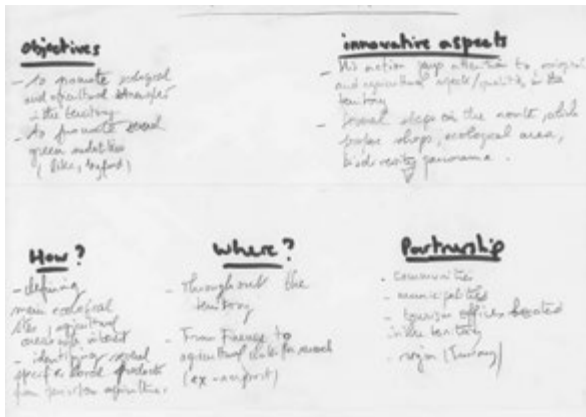 objectives
- to promote ecological
and agricultural strengths
in the territory
- to promote
green mobilities
(bike, by foot)
innovative aspects
- this action pays attention to
and agricultural aspects/qualities in the
territory
- several steps on the route, which
shops, ecological area,
biodiversity panorama.
How?
- defining
main ecological
sites, agricultural
areas with interest
- identifying several
specific local products
from agriculture.
Where?
- throughout the
territory
- From to
agricultural
(ex-airport)
Partnership
- communities
- municipalities
- tourism offices located
in the territory
- region (Tuscany)